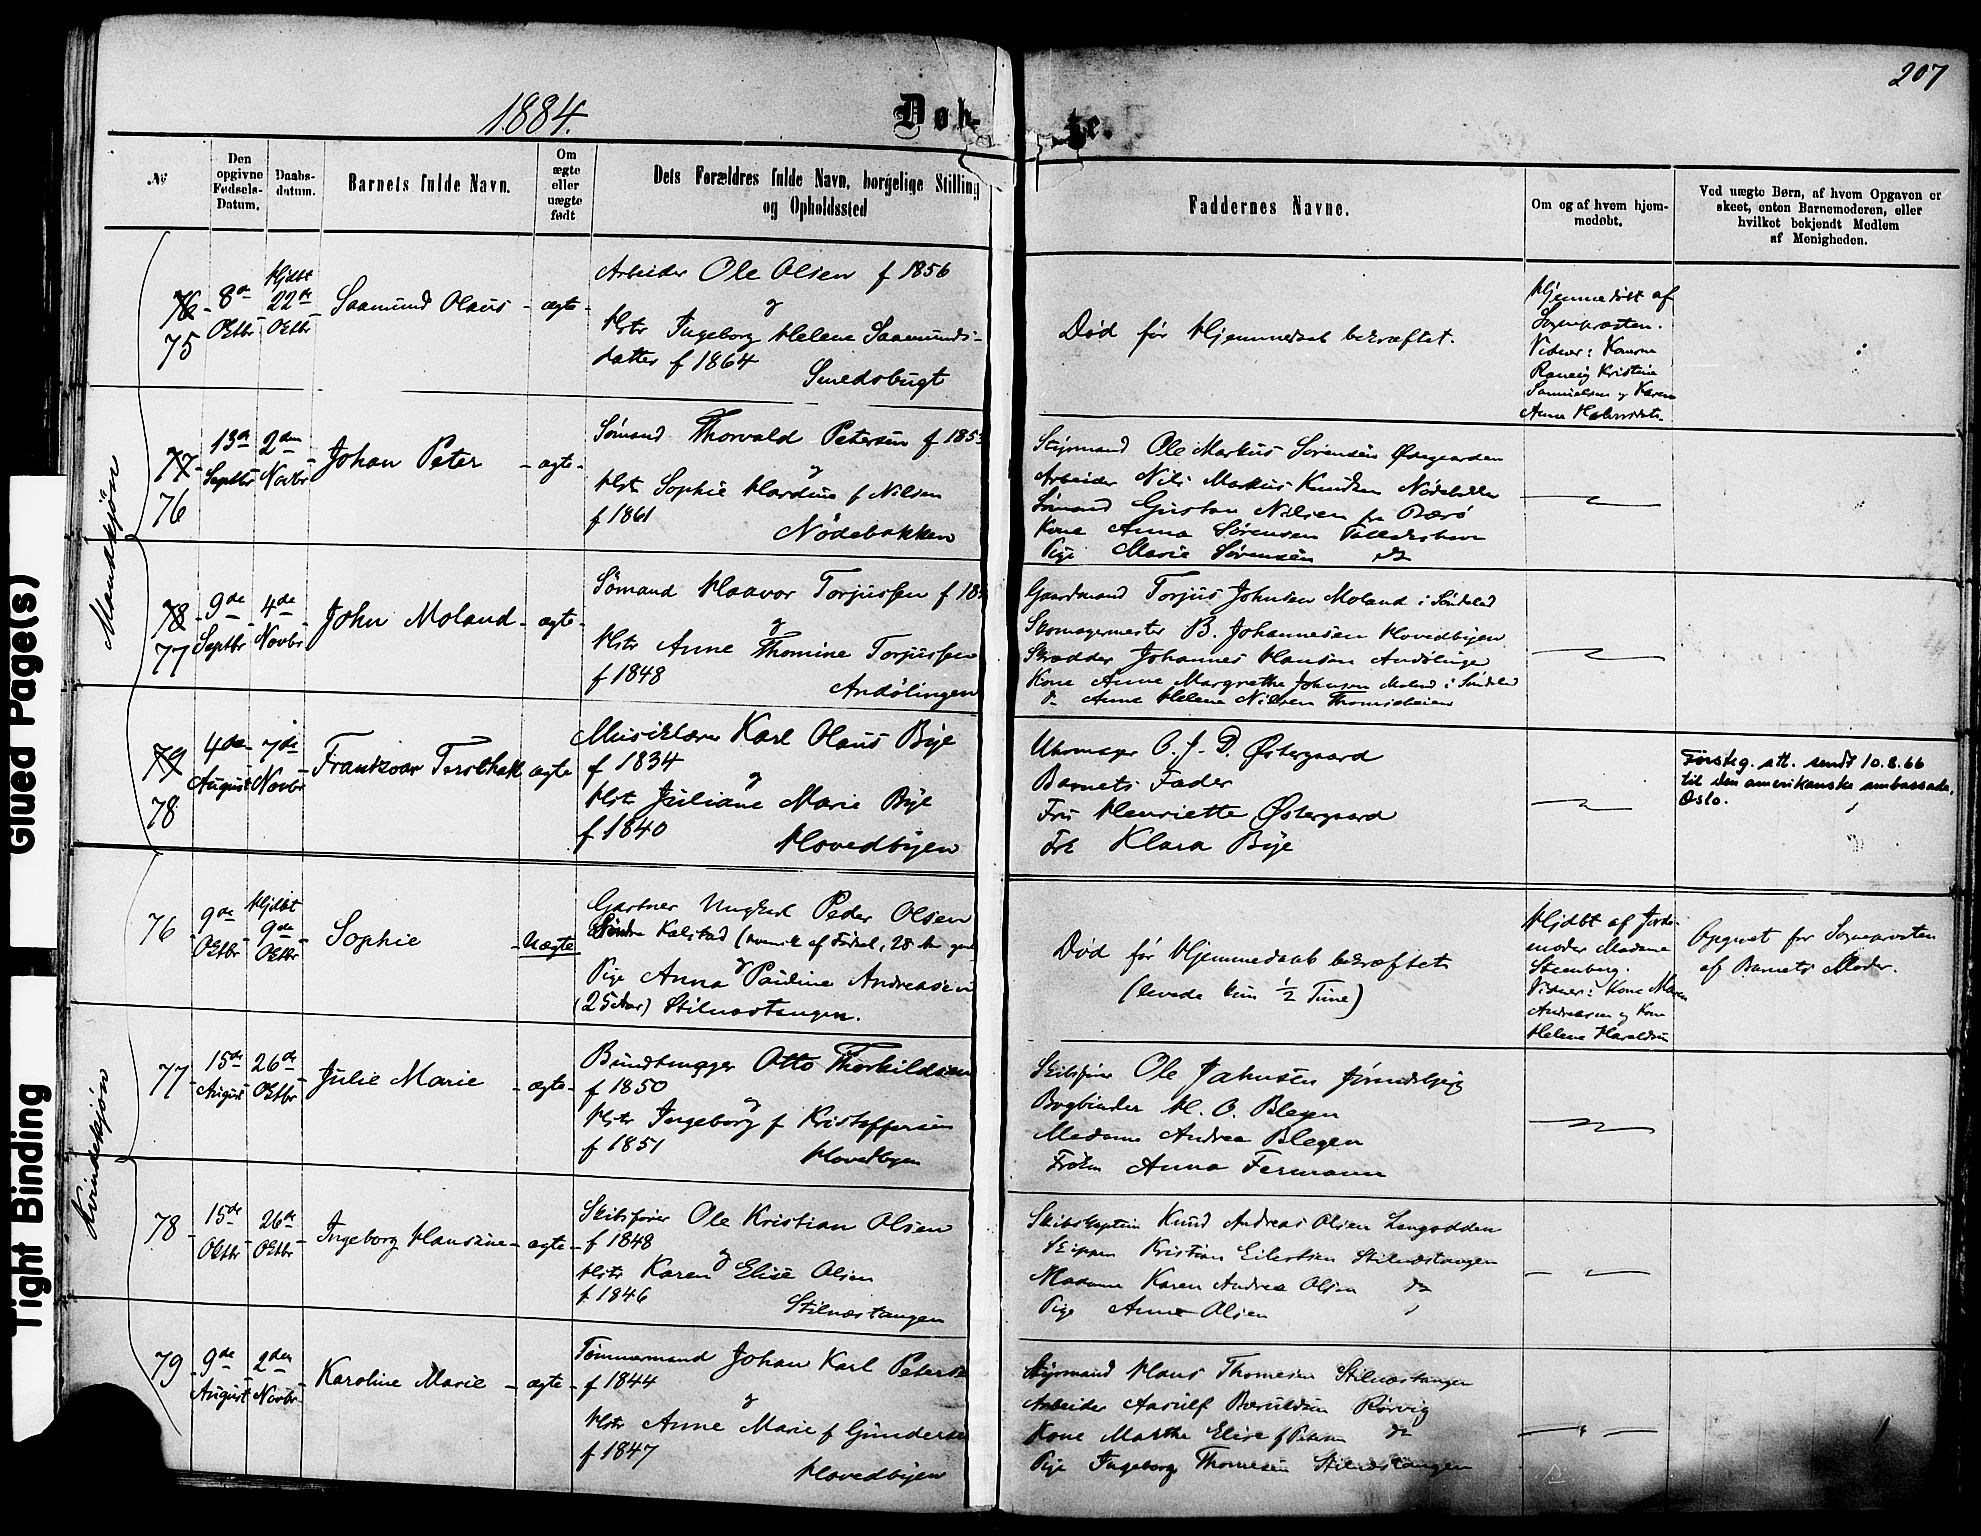 207
1884.
Døb-
te.
No
Den opgivne Fødsels-Datum.
Daabs-datum.
Barnets fulde Navn.
Om ægte eller uægte født
Dets Forældres fulde Navn, borgelige Stilling
og Opholdssted
Faddernes Navne.
Om og af hvem hjem-
medøbt.
Ved uægte Børn, af hvem Opgaven er
skeet, enten Barnemoderen, eller
hvilket bekjendt Medlem
af Menigheden.
Glued Page(s)
Tight Binding
Mandskjøn
76
75
8de Octbr
Hjdbt 22de Octbr
Saamund Olaus
ægte
Arbeider Ole Olsen f 1856
og
Hstr Ingeborg Helene Saamunds-
datter f 1864
Smedsbugt
Død før Hjemmedaab bekræftet.
Hjemmedøbt af
Sogneprasten.
Vidner: Konerne
Kristine
Samuelsen og Karen
Anne
77
76
13de Septbr
2den Novbr
Johan Peter
ægte
Sømand Thorvald Petersen f 185
og
Hstr Sophie Hardine f Nilsen
f 1861
Nødebakken
Styrmand Ole Markus Sørensen Østegaarden
Arbeider Nils Markus Knudsen
Sømand Gustav Nilsen fra Barø
Kone Anna Sørensen
Pige Marie Sørensen do
78
77
9de Septbr
4de Novbr
John Moland
ægte
Sømand Haavor Torjussen f 18
og
Hstr Anne Thomine Torjussen
f 1848
Andølingen
Gaardmand Torjus Johnsen Moland i Søndeled
Skomagermester B. Johannesen Hovedbyen
Skrædder Johannes Hansen Andølingen
Kone Anne Margrethe Johnsen Moland i Søndeled
do Anne Helene Nilsen Thomesheien
79
78
4de August
7de Novbr
Frantzvar Terschak
ægte
Musiklærer Karl Olaus Bye
f 1834
og
Hstr Juliane Marie Bye
f 1840
Hovedbyen
Uhrmager O. J. D. Østergaard
Barnets Fader
Fru Henriette Østergaard
Frk Klara Bye
Førsteg. att. sendt 10.8.66
til den amerikanske ambassade,
Oslo.
Kvindekjøn
76
9de Octbr
Hjdbt 9de Octbr
Sophie
Uægte
Gartner Ungkarl Peder Olsen
Kalstad
og
Pige Anna Pauline Andreasen
(25 Aar) Stilnæstangen.
Død før Hjemmedaab bekræftet
(levede kun ½ Time)
Hjdbt af Jorde-
moder Madame
Steenberg.
Vidner: Kone Maren
Andreasen og Kone
Helene Haraldsen
Opgivet for Sogneprasten
af Barnets Moder.
77
15de August
26de Octbr
Julie Marie
ægte
Bundtmager Otto Thorkildsen
f 1850
og
Hstr Ingeborg f Kristoffersen
f 1851
Hovedbyen
Skibsfører Ole Jahnsen
Bogbinder H. O. Blegen
Madame Andrea Blegen
Frøken Anna Fermann
78
15de Octbr
26de Octbr
Ingeborg Hansine
ægte
Skibsfører Ole Kristian Olsen
f 1848
og
Hstr Karen Elise Olsen
f 1846
Stilnæstangen
Skibskaptein Knud Andreas Olsen Langodden
Skipper Kristian Eilertsen Stilnæstangen
Madame Karen Andrea Olsen do
Pige Anne Olsen
79
9de August
2den Novbr
Karoline Marie
ægte
Tømmermand Johan Karl Peterse
f 1844
og
Hstr Anne Marie f Gunderse
f 1847
Hovedbyen
Styrmand Hans Thomesen Stilnæstangen
Arbeider Aasulf Baruldsen Rørvig
Kone Marthe Elise f Petersen do
Pige Ingeborg Thomesen Stilnæstangen